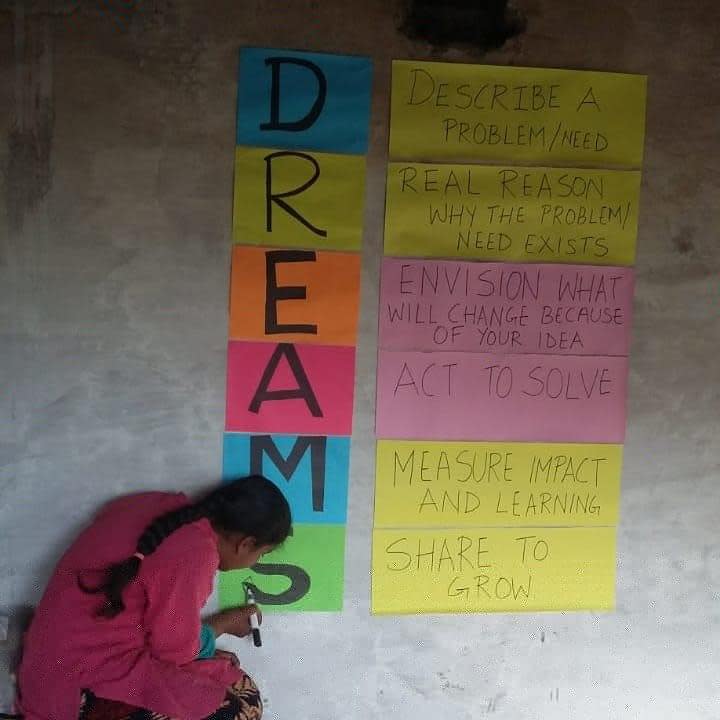 D
DESCRIBE A
PROBLEM/NEED
R
REAL REASON
WHY THE PROBLEM/
NEED EXISTS
E
ENVISION WHAT
WILL CHANGE BECAUSE
OF YOUR IDEA
A
ACT TO SOLVE
M
MEASURE IMPACT
AND LEARNING
S
SHARE TO
GROW